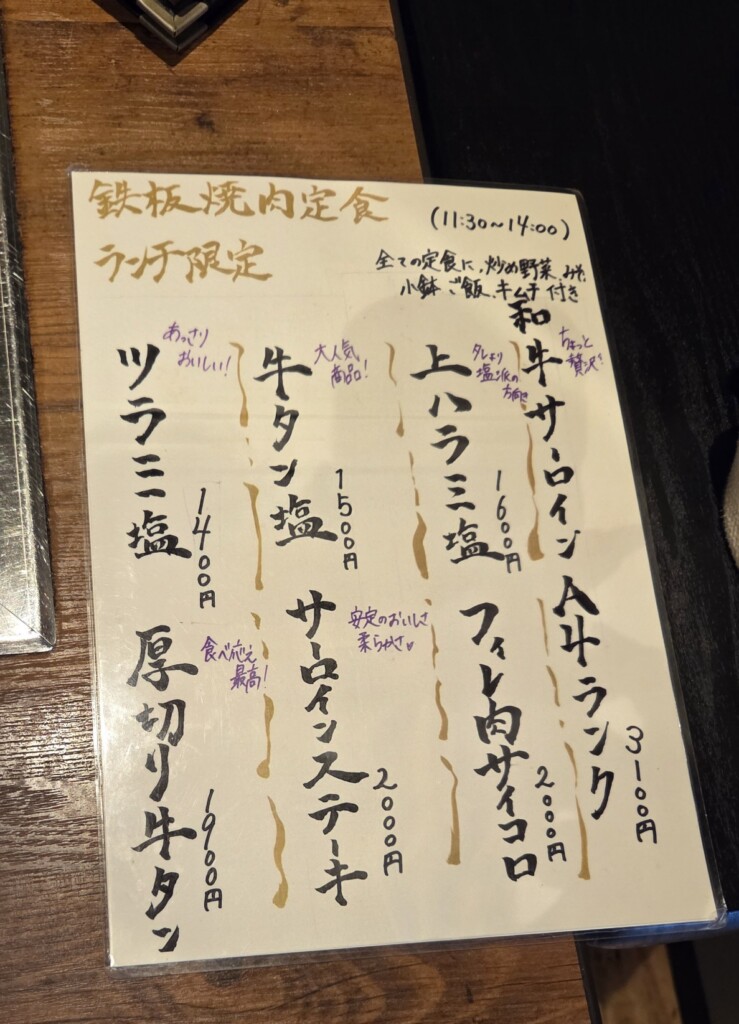 鉄板焼肉定食
(11:30~14:00)
ランチ限定
全ての定食に、炒め野菜、みそ、
小鉢、ご飯、キムチ付き
和牛サーロインA4ランク
3100円
ちょっと
贅沢!
上ハラミ塩
1600円
タレより
塩派の
方向き
フィレ肉サイコロ
2000円
牛タン塩
1500円
大人気
商品!
サーロインステーキ
2000円
安定のおいしさ
柔らかさ
ツラミ塩
1400円
あっさり
おいしい!
厚切り牛タン
1900円
食べ応え
最高!